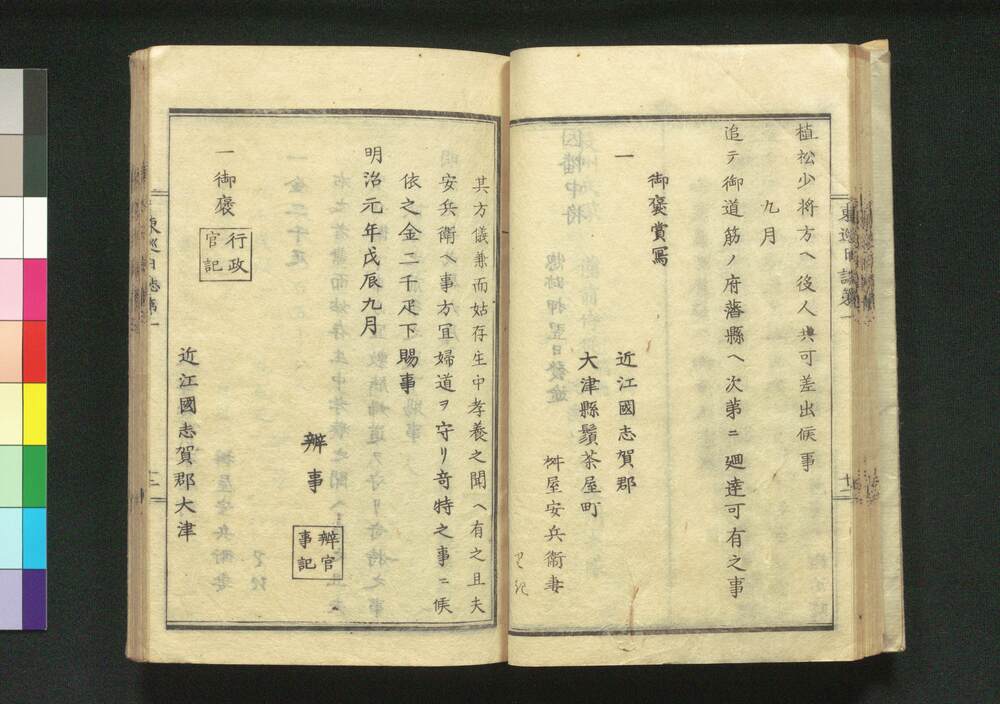 植松少将方ヘ役人共可差出候事
九月
追テ御道筋ノ府藩縣ヘ次第ニ廻達可有之事
一 御褒賞寫
近江國志賀郡
大津縣鬚茶屋町
舛屋安兵衞妻
其方儀兼而姑存生中孝養之聞ヘ有之且夫
安兵衞ヘ事方冝婦道ヲ守リ奇特之事ニ候
依之金二千疋下賜事
明治元年戊辰九月
辨事
辨官事記
一 御褒
行政官記
近江國志賀郡大津
東巡日誌第一
十二